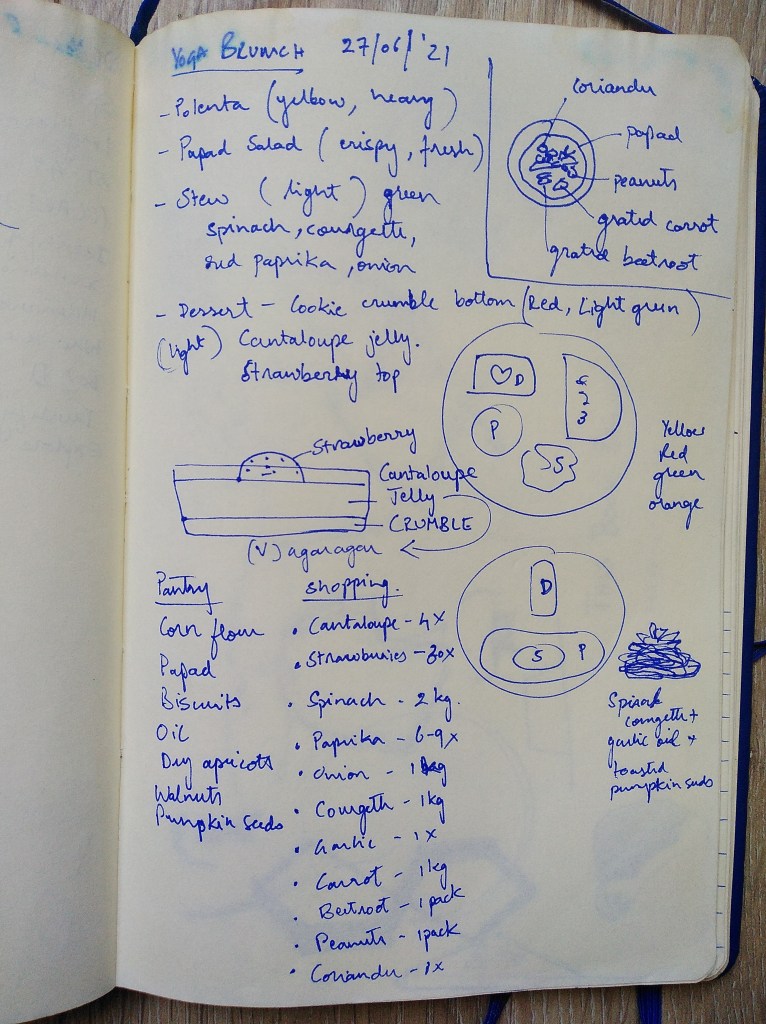 YOGA BRUNCH 27/06/'21
- Polenta (yellow, heavy)
- Papad Salad (crispy, fresh)
- Stew (light) green
spinach, courgette,
red paprika, onion
coriander
papad
peanuts
grated carrot
grated beetroot
- Dessert - Cookie crumble bottom (Red, Light green)
(light) Cantaloupe jelly.
Strawberry top
♡D
1
2
3
P
S
Yellow
Red
green
orange
Strawberry
Cantaloupe
Jelly
CRUMBLE
(V) agaragar
D
S P
Spinach
courgette +
garlic oil +
toasted
pumpkin seeds
Pantry
Corn flour
Papad
Biscuits
Oil
Dry apricots
Walnuts
Pumpkin Seeds
Shopping.
• Cantaloupe - 4x
• Strawberries - 30x
• Spinach - 2 kg.
• Paprika - 6-9x
• Onion - 1 kg
• Courgette - 1kg
• Garlic - 1x
• Carrot - 1kg
• Beetroot - 1 pack
• Peanuts - 1 pack
• Coriander - 1x